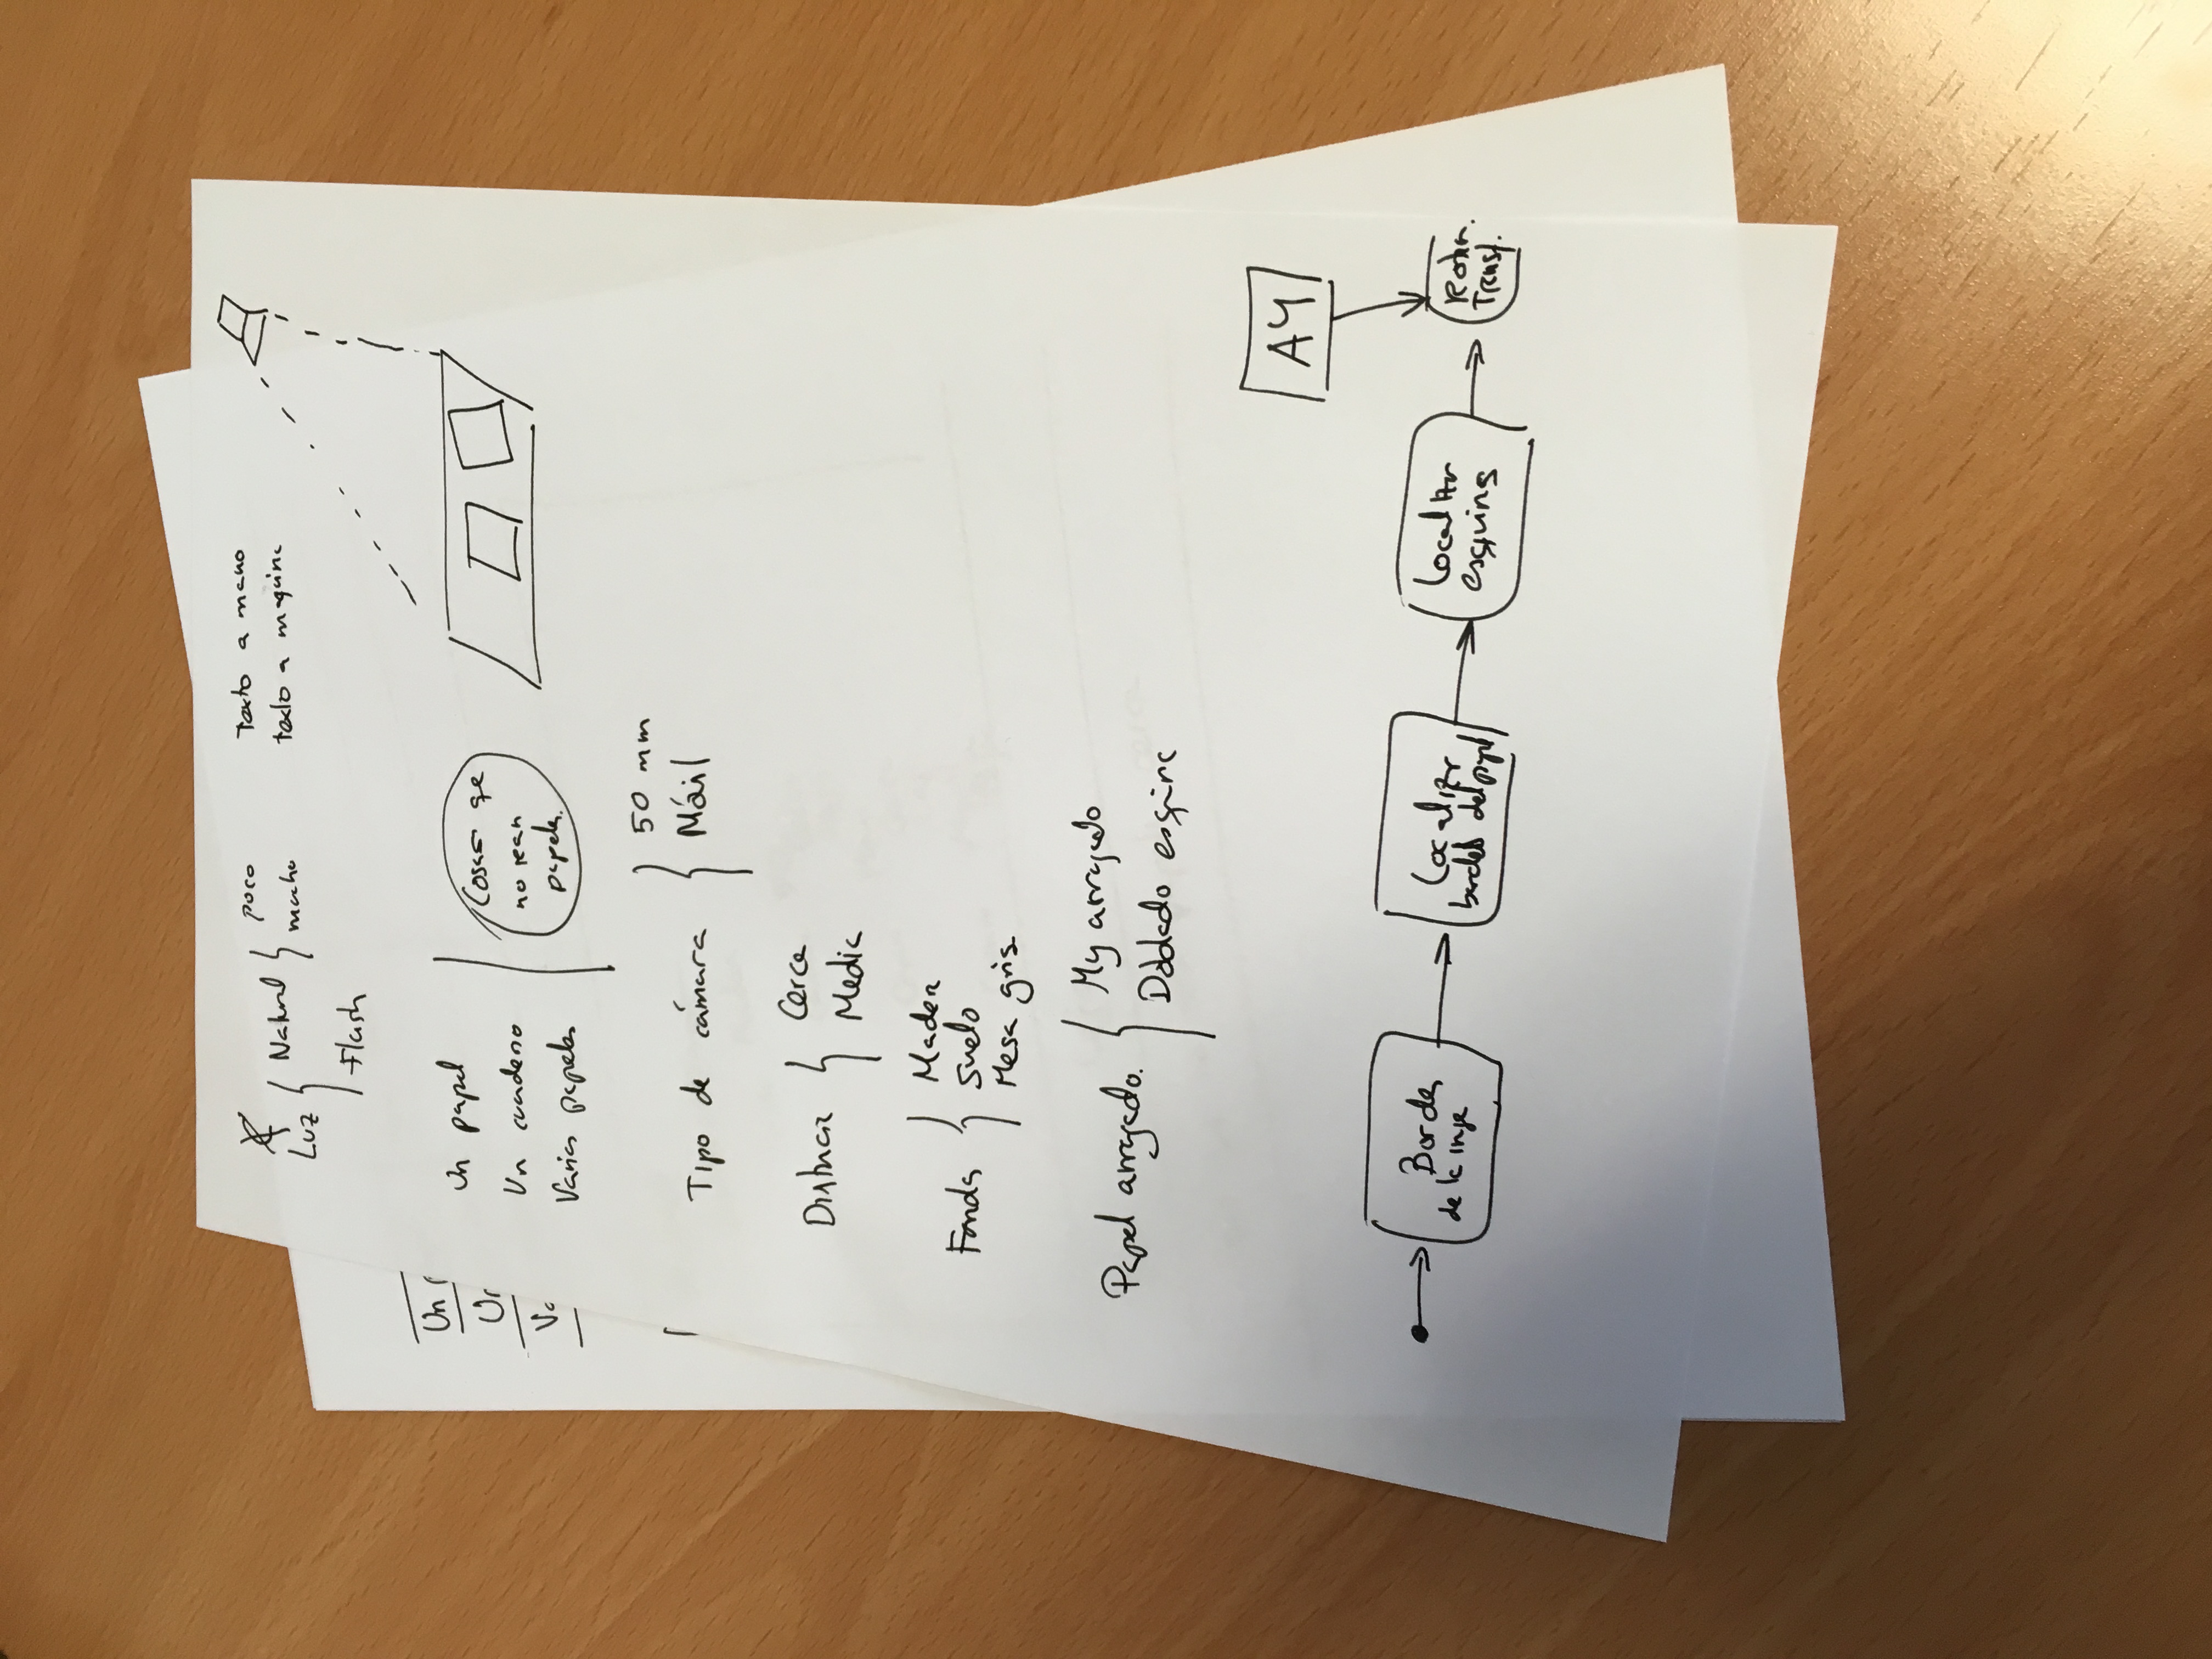 Luz { Natural { poco
mucho
Flash
Texto a mano
texto a maquina
Un papel
Un cuaderno
Varios papeles
Cosas que
no sean
papeles.
Tipo de cámara { 50 mm
Móvil
Distancia { Cerca
Media
Fondo { Madera
Suelo
Mesa gris
Papel arrugado. { Muy arrugado
Doblado esquina
A4
Bordes
de la
Localizar
bordes del papel
Localizar
esquinas
Transf.
Un